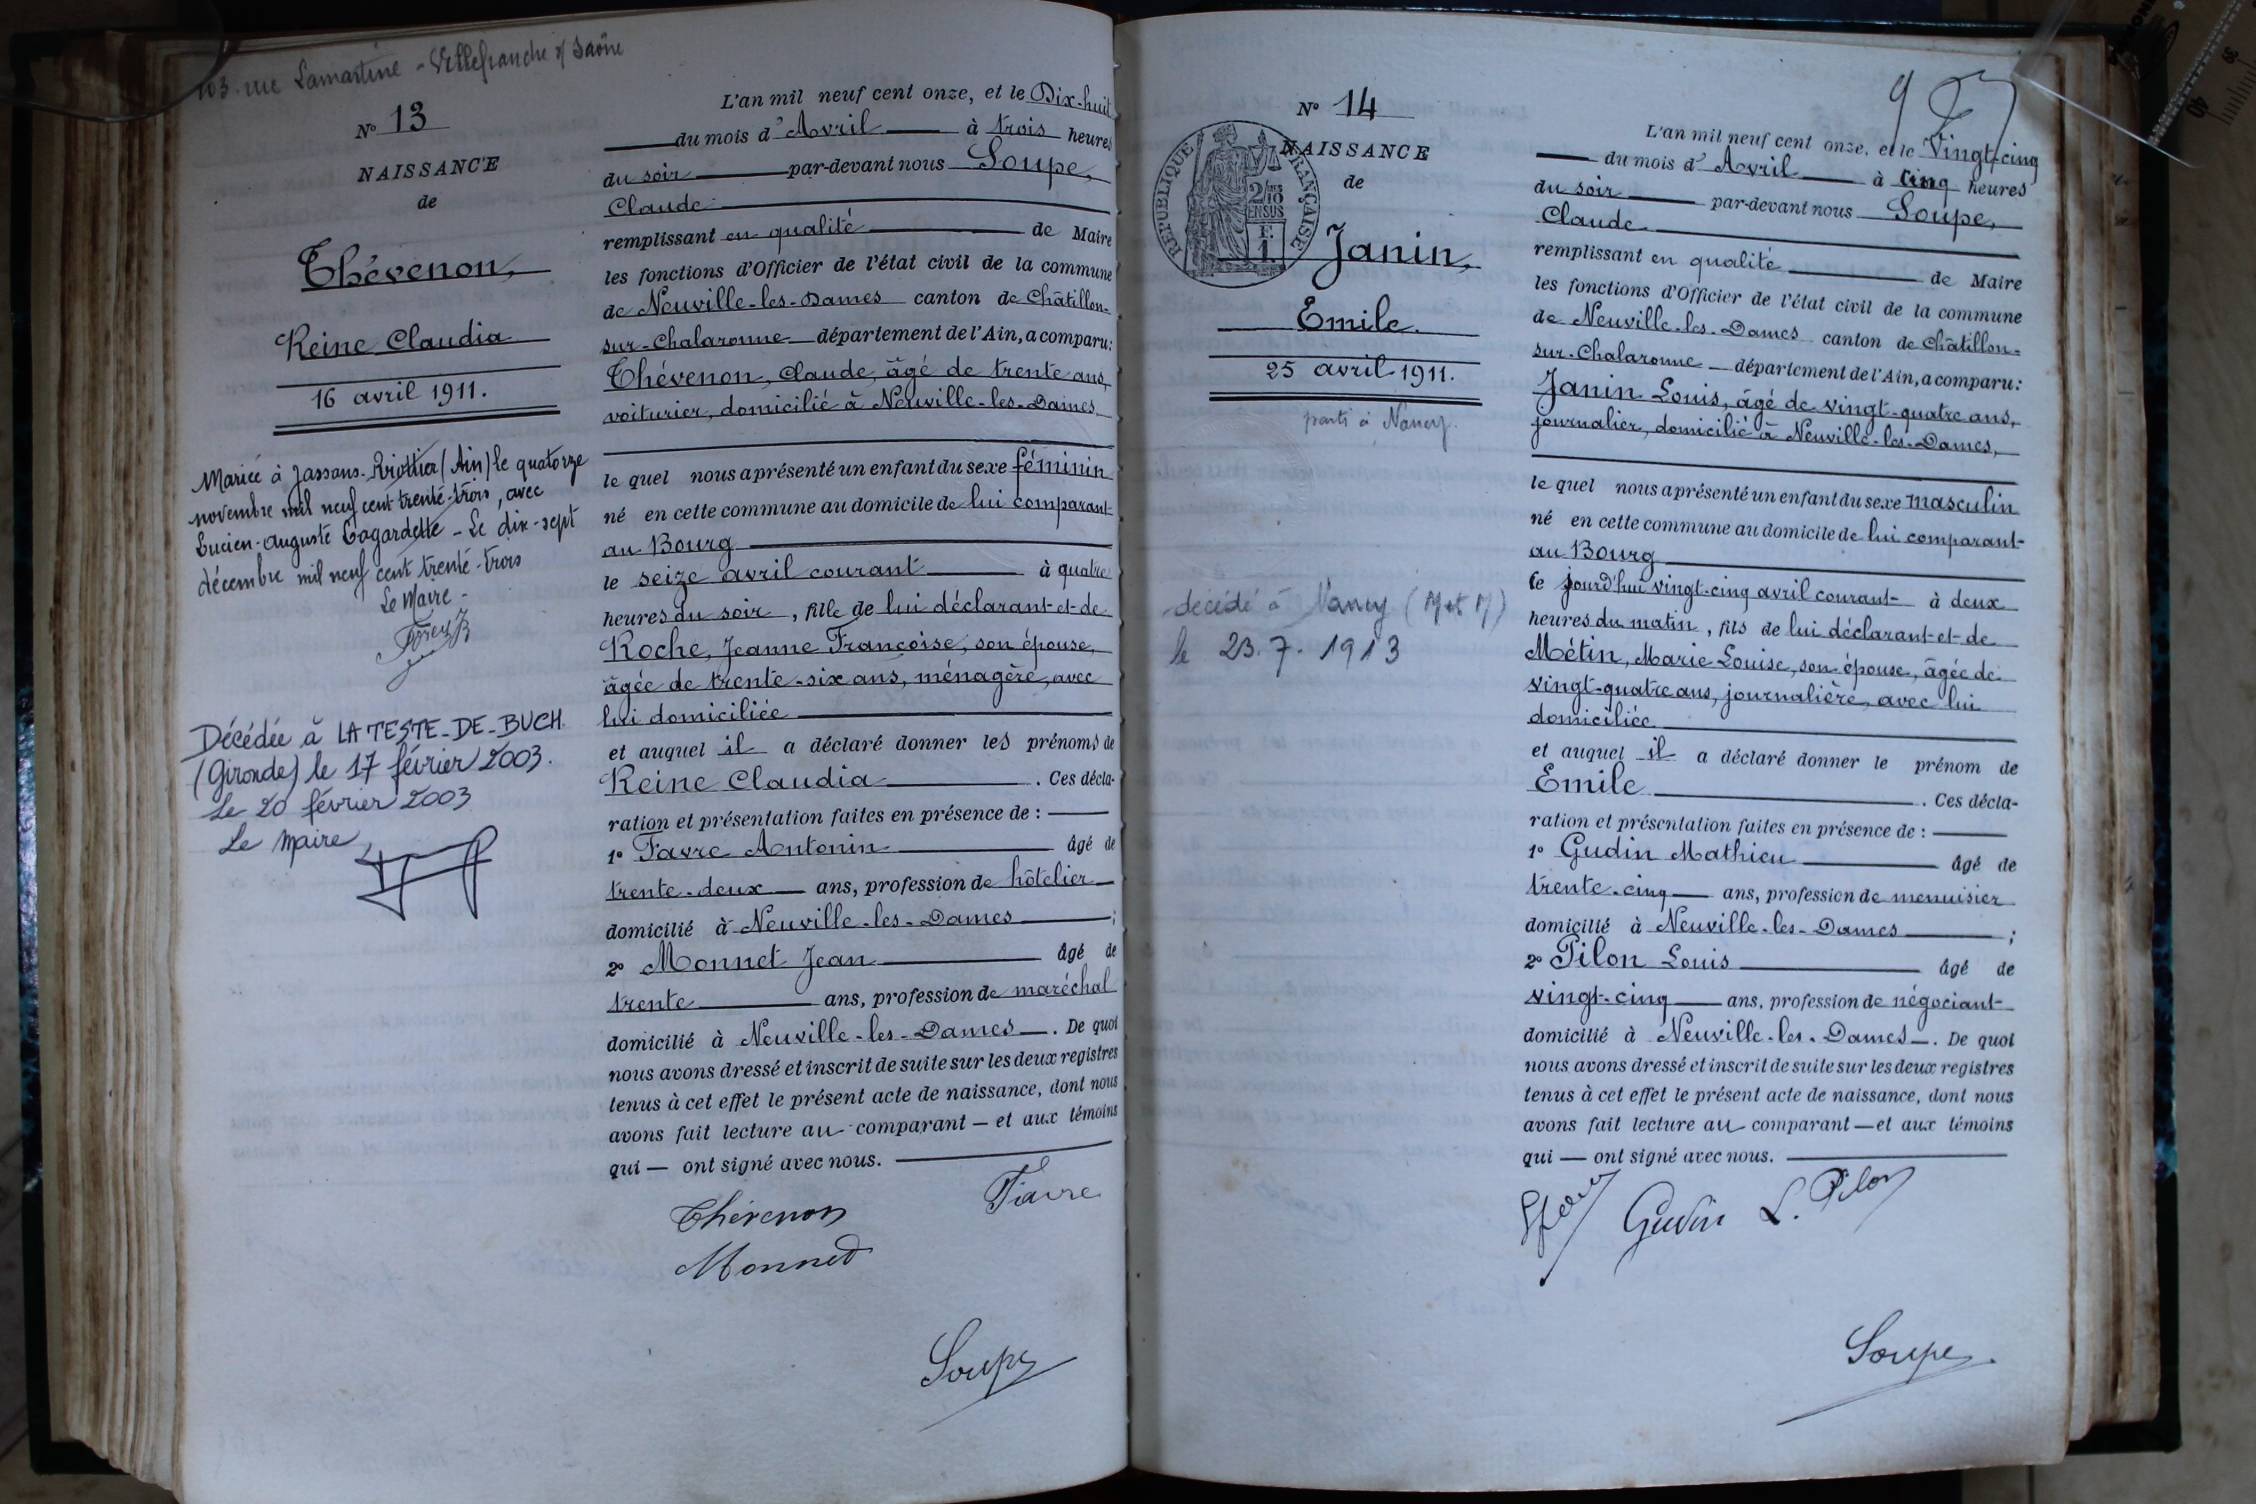 103 rue Lamartine - Villefranche s/ Saône
N° 13
NAISSANCE
de
Thévenon,
Reine Claudia
16 avril 1911.
Mariée à Jassans-Riottier (Ain) le quatorze
novembre mil neuf cent trente-trois, avec
Lucien-Auguste - Le dix-sept
décembre mil neuf cent trente-trois
Le Maire -
Décédée à LA TESTE-DE-BUCH
(Gironde) le 17 février 2003.
Le 20 février 2003
Le Maire,
L'an mil neuf cent onze, et le Dix-huit
du mois d'Avril à trois heures
du soir par-devant nous Soupe,
Claude
remplissant en qualité de Maire
les fonctions d'Officier de l'état civil de la commune
de Neuville-les-Dames canton de Châtillon-
sur-Chalaronne département de l'Ain, a comparu:
Thévenon, Claude, âgé de trente ans,
voiturier, domicilié à Neuville-les-Dames
le quel nous a présenté un enfant du sexe féminin
né en cette commune au domicile de lui comparant
au Bourg
le seize avril courant à quatre
heures du soir, fille de lui déclarant et de
Roche, Jeanne Françoise, son épouse,
âgée de trente-six ans, ménagère, avec
lui domiciliée
et auquel il a déclaré donner les prénoms de
Reine Claudia. Ces décla-
ration et présentation faites en présence de :
1° Favre Antonin âgé de
trente-deux ans, profession de hôtelier
domicilié à Neuville-les-Dames ;
2° Monnet Jean âgé de
trente ans, profession de maréchal
domicilié à Neuville-les-Dames. De quoi
nous avons dressé et inscrit de suite sur les deux registres
tenus à cet effet le présent acte de naissance, dont nous
avons fait lecture au comparant — et aux témoins
qui — ont signé avec nous.
Thévenon Favre
Monnet
Soupe
N° 14
NAISSANCE
de
REPUBLIQUE FRANÇAISE
2/10
EN SUS
F.
1
Janin,
Emile
25 avril 1911.
parti à Nancy.
décédé à Nancy (M et M)
le 23.7.1913
L'an mil neuf cent onze, et le Vingt-cinq
du mois d'Avril à cinq heures
du soir par-devant nous Soupe,
Claude
remplissant en qualité de Maire
les fonctions d'Officier de l'état civil de la commune
de Neuville-les-Dames canton de Châtillon-
sur-Chalaronne département de l'Ain, a comparu:
Janin Louis, âgé de vingt-quatre ans,
journalier, domicilié à Neuville-les-Dames,
le quel nous a présenté un enfant du sexe masculin
né en cette commune au domicile de lui comparant
au Bourg
ce jourd'hui vingt-cinq avril courant à deux
heures du matin, fils de lui déclarant et de
Métin, Marie Louise, son épouse, âgée de
vingt-quatre ans, journalière, avec lui
domiciliée
et auquel il a déclaré donner le prénom de
Emile. Ces décla-
ration et présentation faites en présence de :
1° Gudin Mathieu âgé de
trente-cinq ans, profession de menuisier
domicilié à Neuville-les-Dames ;
2° Pilon Louis âgé de
vingt-cinq ans, profession de négociant
domicilié à Neuville-les-Dames. De quoi
nous avons dressé et inscrit de suite sur les deux registres
tenus à cet effet le présent acte de naissance, dont nous
avons fait lecture au comparant — et aux témoins
qui — ont signé avec nous.
Gudin L. Pilon
Soupe